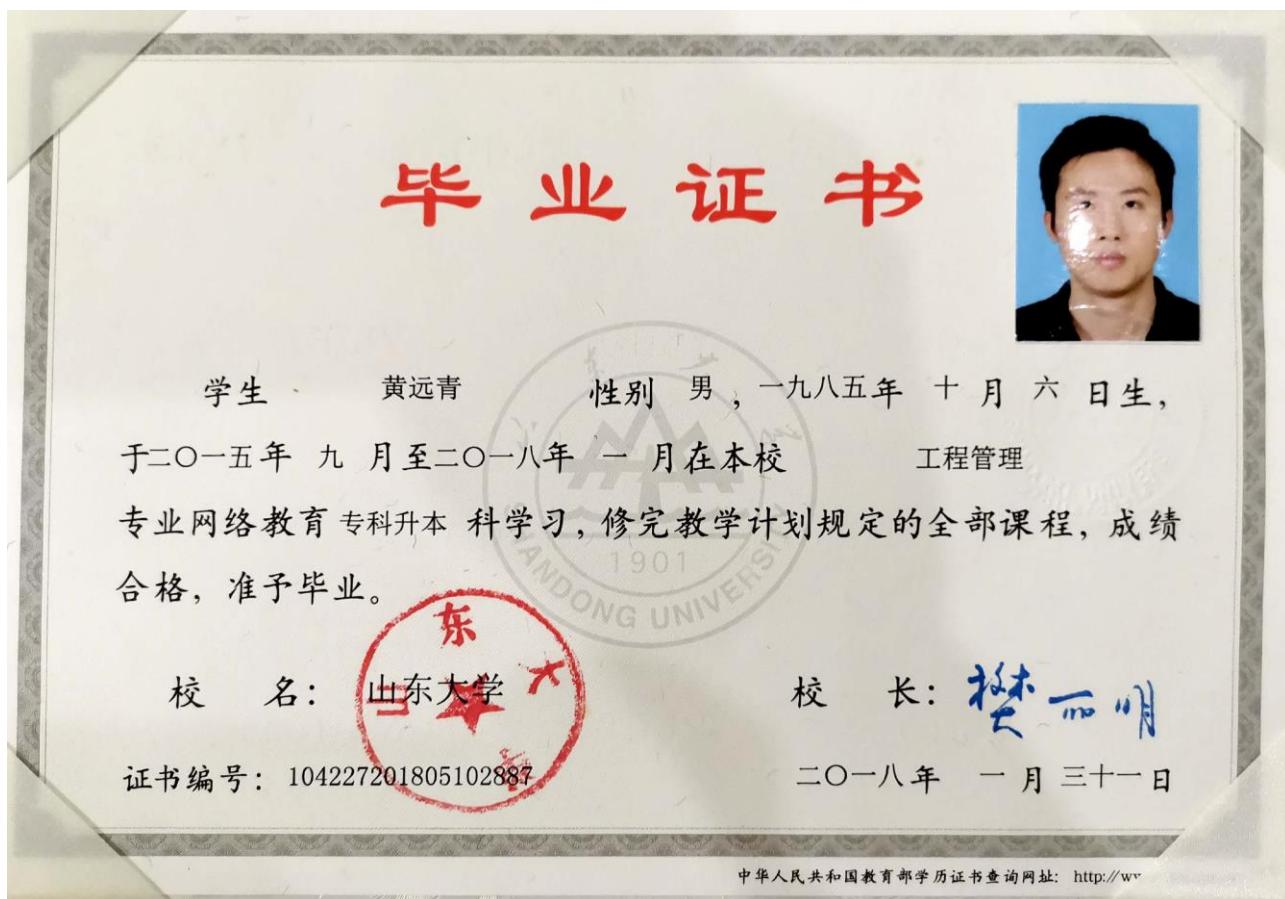 毕业证书
学生 黄远青 性别 男，一九八五年 十 月 六 日生，
于二〇一五年 九 月至二〇一八年 一 月在本校 工程管理
专业网络教育 专科升本 科学习，修完教学计划规定的全部课程，成绩
合格，准予毕业。
1901
SHANDONG UNIVERSITY
山东大学
校 名： 山东大学 校 长： 樊丽明
证书编号： 104227201805102887 二〇一八年 一 月 三十一 日
中华人民共和国教育部学历证书查询网址： http://ww